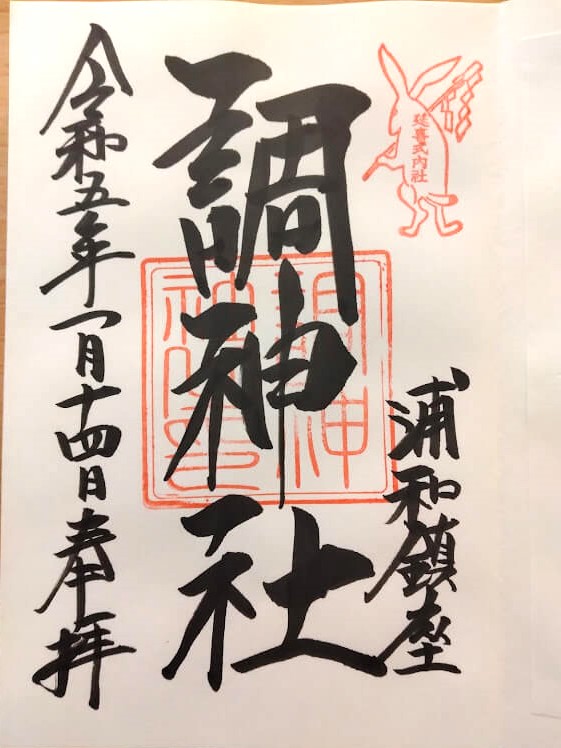 延喜式内社
浦和鎮座
調神社
調神
社之印
令和五年一月十四日奉拝